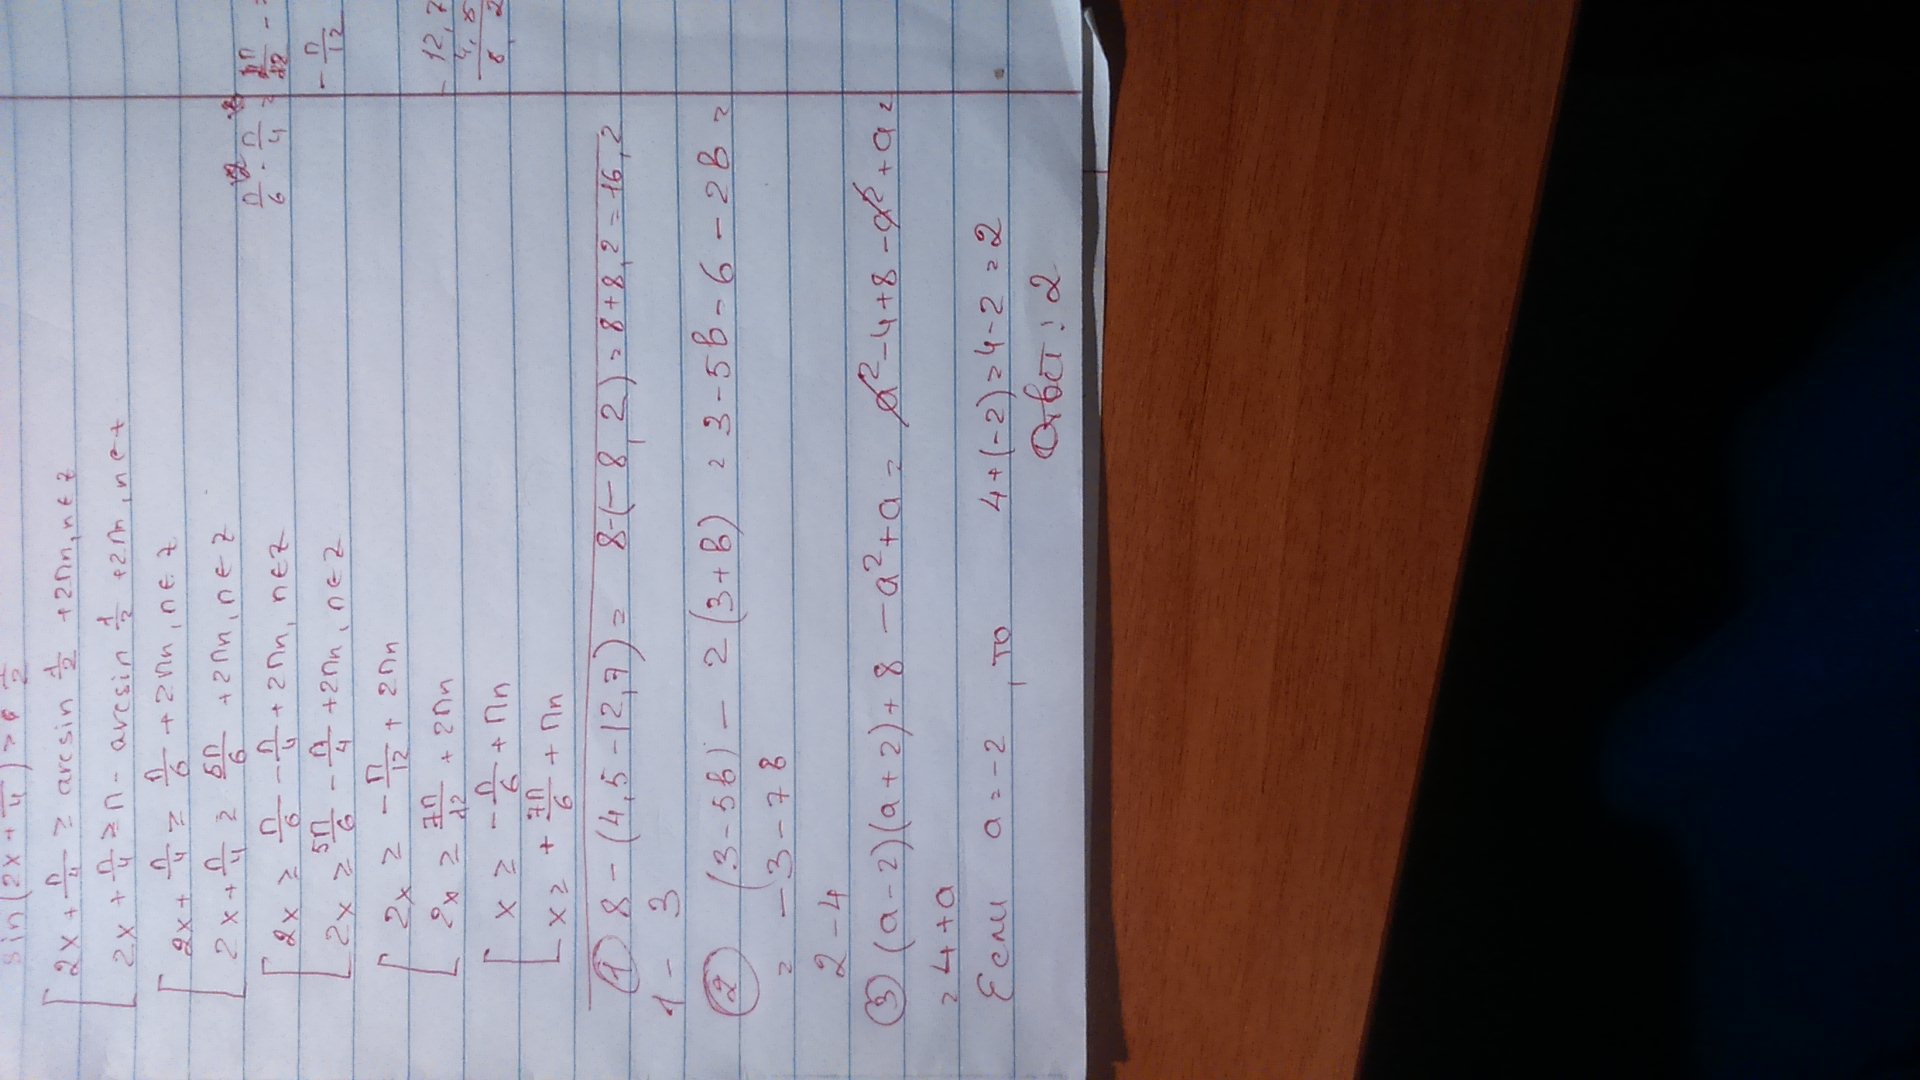 sin(2x+π/4) = 1/2
[ 2x + π/4 = arcsin 1/2 + 2πn, n ∈ z
2x + π/4 = π - arcsin 1/2 + 2πn, n ∈ z
[ 2x + π/4 = π/6 + 2πn, n ∈ z
2x + π/4 = 5π/6 + 2πn, n ∈ z
[ 2x = π/6 - π/4 + 2πn, n ∈ z
2x = 5π/6 - π/4 + 2πn, n ∈ z
[ 2x = - π/12 + 2πn
2x = 7π/12 + 2πn
[ x = - π/6 + πn
x = + 7π/6 + πn
- π/12
- 12,7
4,5
8,2
① 8 - (4,5 - 12,7) = 8-(-8,2) = 8+8,2 = 16,2
1 - 3
② (3-5b) - 2(3+b) = 3-5b-6-2b =
= -3-7b
2-4
③ (a-2)(a+2)+8 - a²+a = a²-4+8-a²+a =
= 4+a
Если a=-2, то 4+(-2)=4-2=2
Ответ: 2